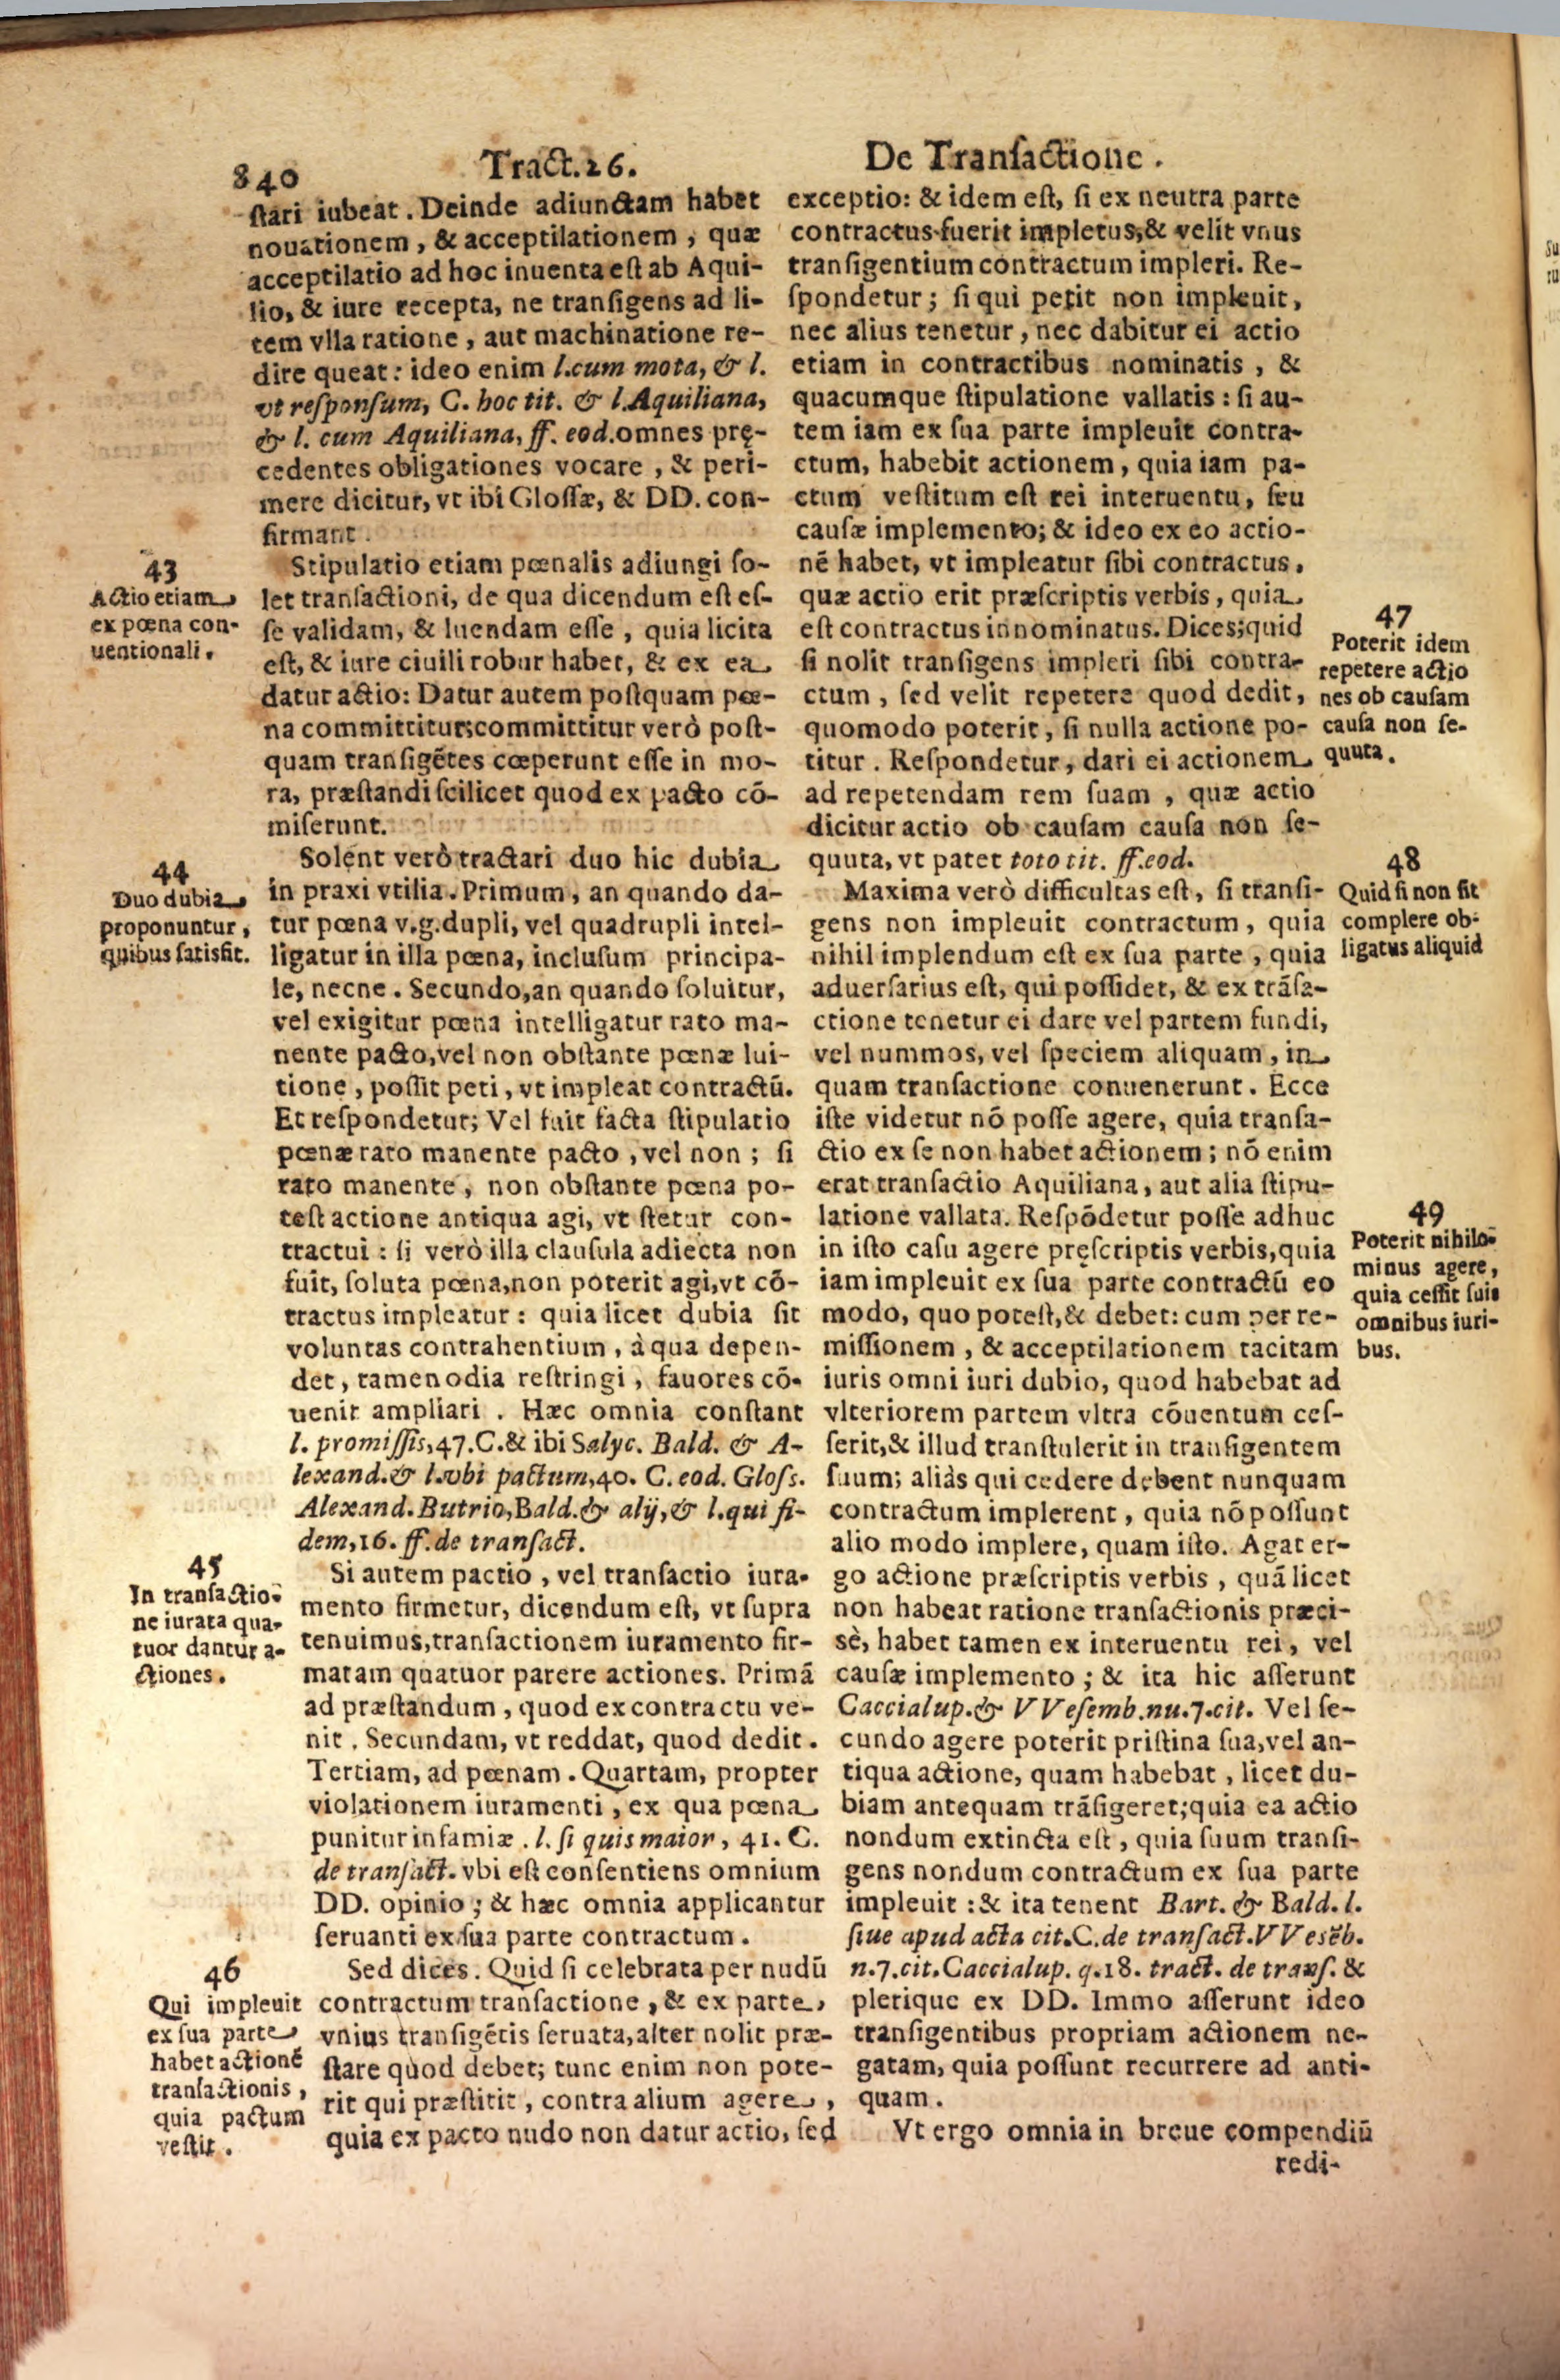 840
Tract.26.
De Tranſactione.
ſtari iubeat. Deinde adiunctam habet
nouationem, & acceptilationem, quæ
acceptilatio ad hoc inuenta eſt ab Aqui-
lio, & iure recepta, ne tranſigens ad li-
tem vlla ratione, aut machinatione re-
dire queat: ideo enim l.cum mota, & l.
vt reſponſum, C. hoc tit. & l.Aquiliana,
& l. cum Aquiliana, ff. eod.omnes prę-
cedentes obligationes vocare, & peri-
mere dicitur, vt ibi Gloſſæ, & DD. con-
firmant.
43
Actio etiam
ex pœna con-
uentionali.
Stipulatio etiam pœnalis adiungi ſo-
let tranſactioni, de qua dicendum eſt eſ-
ſe validam, & luendam eſſe, quia licita
eſt, & iure ciuili robur habet, & ex ea
datur actio: Datur autem poſtquam pœ-
na committitur;committitur verò poſt-
quam tranſigẽtes cœperunt eſſe in mo-
ra, præſtandi ſcilicet quod ex pacto cõ-
miſerunt.
44
Duo dubia
proponuntur,
quibus ſatisfit.
Solent verò tractari duo hic dubia
in praxi vtilia. Primum, an quando da-
tur pœna v.g.dupli, vel quadrupli intel-
ligatur in illa pœna, incluſum principa-
le, necne. Secundo,an quando ſoluitur,
vel exigitur pœna intelligatur rato ma-
nente pacto,vel non obſtante pœnæ lui-
tione, poſſit peti, vt impleat contractũ.
Et reſpondetur; Vel fuit facta ſtipulatio
pœnæ rato manente pacto, vel non; ſi
rato manente, non obſtante pœna po-
teſt actione antiqua agi, vt ſtetur con-
tractui: ſi verò illa clauſula adiecta non
fuit, ſoluta pœna,non poterit agi,vt cõ-
tractus impleatur: quia licet dubia ſit
voluntas contrahentium, à qua depen-
det, tamen odia reſtringi, fauores cõ-
uenit ampliari. Hæc omnia conſtant
l. promiſſis,47.C.& ibi Salyc. Bald. & A-
lexand.& l.vbi pactum,40. C. eod. Gloſs.
Alexand.Butrio,Bald.& alij,& l.qui fi-
dem,16. ff.de tranſact.
45
In tranſactio-
ne iurata qua-
tuor dantur a-
ctiones.
Si autem pactio, vel tranſactio iura-
mento firmetur, dicendum eſt, vt ſupra
tenuimus,tranſactionem iuramento fir-
matam quatuor parere actiones. Primã
ad præſtandum, quod ex contractu ve-
nit. Secundam, vt reddat, quod dedit.
Tertiam, ad pœnam. Quartam, propter
violationem iuramenti, ex qua pœna
punitur infamiæ. l. ſi quis maior, 41. C.
de tranſact. vbi eſt conſentiens omnium
DD. opinio; & hæc omnia applicantur
ſeruanti ex ſua parte contractum.
46
Qui impleuit
ex ſua parte
habet actionẽ
tranſactionis,
quia pactum
veſtit.
Sed dices. Quid ſi celebrata per nudũ
contractum tranſactione, & ex parte
vnius tranſigẽtis ſeruata,alter nolit præ-
ſtare quod debet; tunc enim non pote-
rit qui præſtitit, contra alium agere,
quia ex pacto nudo non datur actio, ſed
exceptio: & idem eſt, ſi ex neutra parte
contractus fuerit impletus,& velit vnus
tranſigentium contractum impleri. Re-
ſpondetur; ſi qui petit non impleuit,
nec alius tenetur, nec dabitur ei actio
etiam in contractibus nominatis, &
quacumque ſtipulatione vallatis: ſi au-
tem iam ex ſua parte impleuit contra-
ctum, habebit actionem, quia iam pa-
ctum veſtitum eſt rei interuentu, ſeu
cauſæ implemento; & ideo ex eo actio-
nẽ habet, vt impleatur ſibi contractus,
quæ actio erit præſcriptis verbis, quia
eſt contractus innominatus. Dices;quid
ſi nolit tranſigens impleri ſibi contra-
ctum, ſed velit repetere quod dedit,
quomodo poterit, ſi nulla actione po-
titur. Reſpondetur, dari ei actionem
ad repetendam rem ſuam, quæ actio
dicitur actio ob cauſam cauſa non ſe-
quuta, vt patet toto tit. ff.eod.
47
Poterit idem
repetere actio
nes ob cauſam
cauſa non ſe-
quuta.
48
Quid ſi non ſit
complere ob-
ligatus aliquid
Maxima verò difficultas eſt, ſi tranſi-
gens non impleuit contractum, quia
nihil implendum eſt ex ſua parte, quia
aduerſarius eſt, qui poſſidet, & ex trãſa-
ctione tenetur ei dare vel partem fundi,
vel nummos, vel ſpeciem aliquam, in
quam tranſactione conuenerunt. Ecce
iſte videtur nõ poſſe agere, quia tranſa-
ctio ex ſe non habet actionem; nõ enim
erat tranſactio Aquiliana, aut alia ſtipu-
latione vallata. Reſpõdetur poſſe adhuc
in iſto caſu agere pręſcriptis verbis,quia
iam impleuit ex ſua parte contractũ eo
modo, quo poteſt,& debet: cum per re-
miſſionem, & acceptilationem tacitam
iuris omni iuri dubio, quod habebat ad
vlteriorem partem vltra cõuentum ceſ-
ſerit,& illud tranſtulerit in tranſigentem
ſuum; aliàs qui cedere debent nunquam
contractum implerent, quia nõ poſſunt
alio modo implere, quam iſto. Agat er-
go actione præſcriptis verbis, quã licet
non habeat ratione tranſactionis præci-
sè, habet tamen ex interuentu rei, vel
cauſæ implemento; & ita hic aſſerunt
Caccialup.& VVeſemb.nu.7.cit. Vel ſe-
cundo agere poterit priſtina ſua,vel an-
tiqua actione, quam habebat, licet du-
biam antequam trãſigeret;quia ea actio
nondum extincta eſt, quia ſuum tranſi-
gens nondum contractum ex ſua parte
impleuit: & ita tenent Bart. & Bald. l.
ſiue apud acta cit.C.de tranſact.VVesẽb.
n.7.cit.Caccialup. q.18. tract. de tranſ. &
plerique ex DD. Immo aſſerunt ideo
tranſigentibus propriam actionem ne-
gatam, quia poſſunt recurrere ad anti-
quam.
49
Poterit nihilo-
minus agere,
quia ceſſit ſuis
omnibus iuri-
bus.
Vt ergo omnia in breue compendiũ
redi-